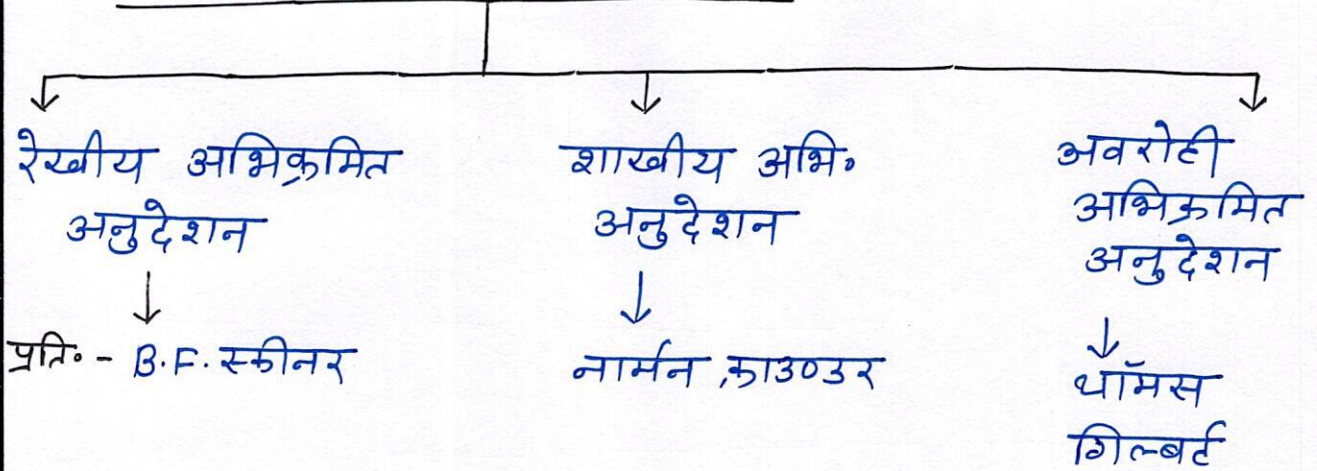 रेखीय अभिक्रमित
अनुदेशन
प्रति० - B.F. स्कीनर
शाखीय अभि०
अनुदेशन
नार्मन क्राउण्डर
अवरोही
अभिक्रमित
अनुदेशन
थॉमस
गिल्बर्ट